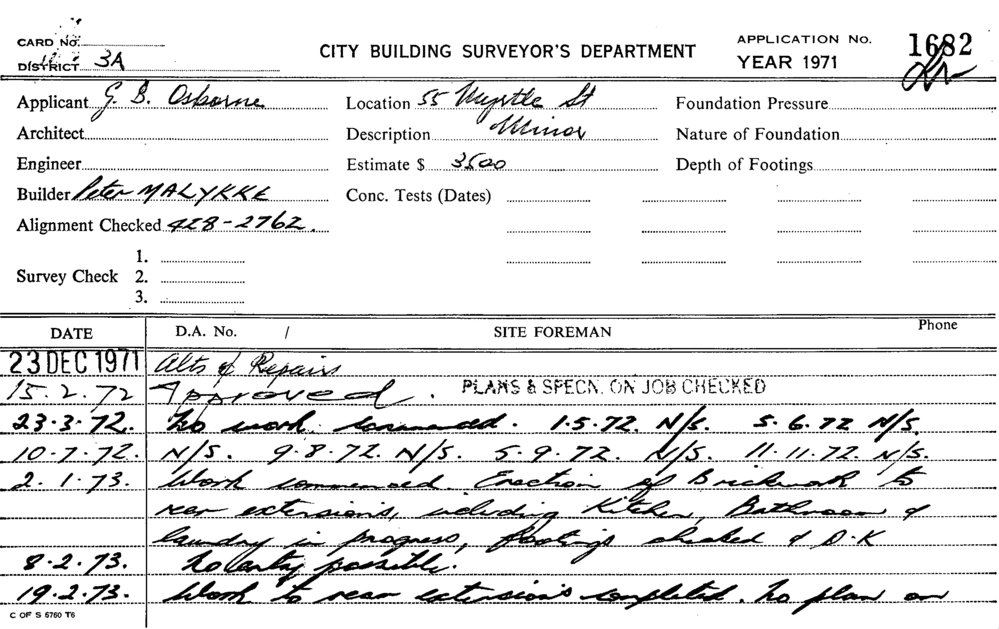 CARD NO.
DISTRICT 3A
CITY BUILDING SURVEYOR'S DEPARTMENT
APPLICATION NO. 1682
YEAR 1971
Applicant G. B. Osborne Location 55 Myrtle St Foundation Pressure
Architect Description Minor Nature of Foundation
Engineer Estimate $ 3500 Depth of Footings
Builder Peter MALYKKE Conc. Tests (Dates)
Alignment Checked 428-2762.
1.
Survey Check 2.
3.
DATE D.A. No. / SITE FOREMAN Phone
23 DEC 1971 Alts & Repairs
15.2.72 Approved. PLANS & SPECN. ON JOB CHECKED
23.3.72. No work commenced. 1.5.72. N/S. 5.6.72 N/S.
10.7.72. N/S. 9.8.72. N/S. 5.9.72. N/S. 11.11.72. N/S.
2.1.73. Work commenced. Erection of Brickwork to
rear extensions, including Kitchen, Bathroom &
laundry in progress, footings checked & O.K
8.2.73. No entry possible.
19.2.73. Work to rear extensions completed. No plan on
C OF S 5760 T6